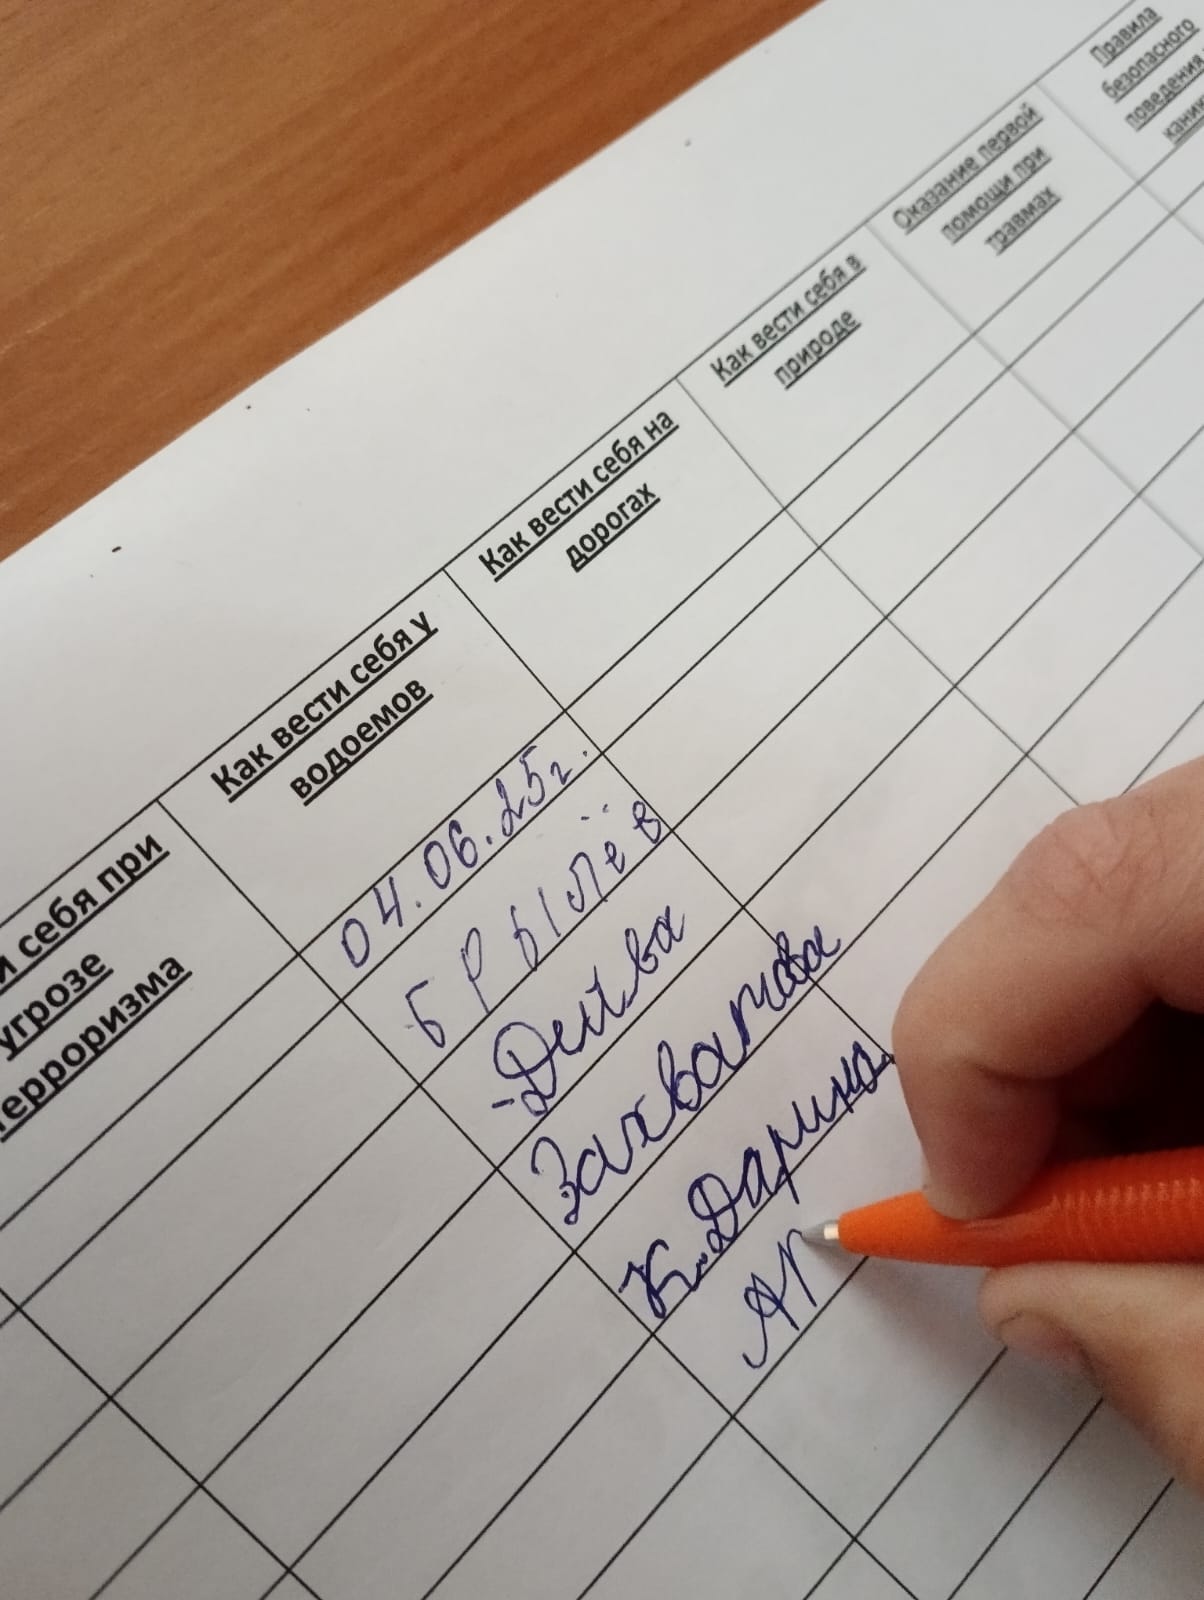 и себя при
угрозе
терроризма
Как вести себя у
водоемов
Как вести себя на
дорогах
Как вести себя в
природе
Оказание первой
помощи при
травмах
Правила
безопасного
поведения
04.06.25г.
Брылёв
Захватова
К. Дарина